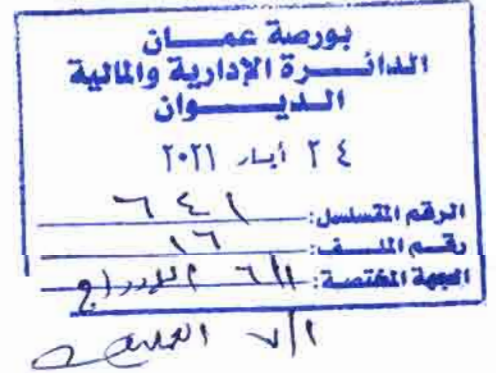 بورصة عمـــان
الدائـــرة الإدارية والمالية
الديـــوان
٢٤ أيار ٢٠٢١
الرقم المتسلسل: ٦٤١
رقم الملف: ١٦
الجهة المختصة: ٦/١ الإدراج
١/٧